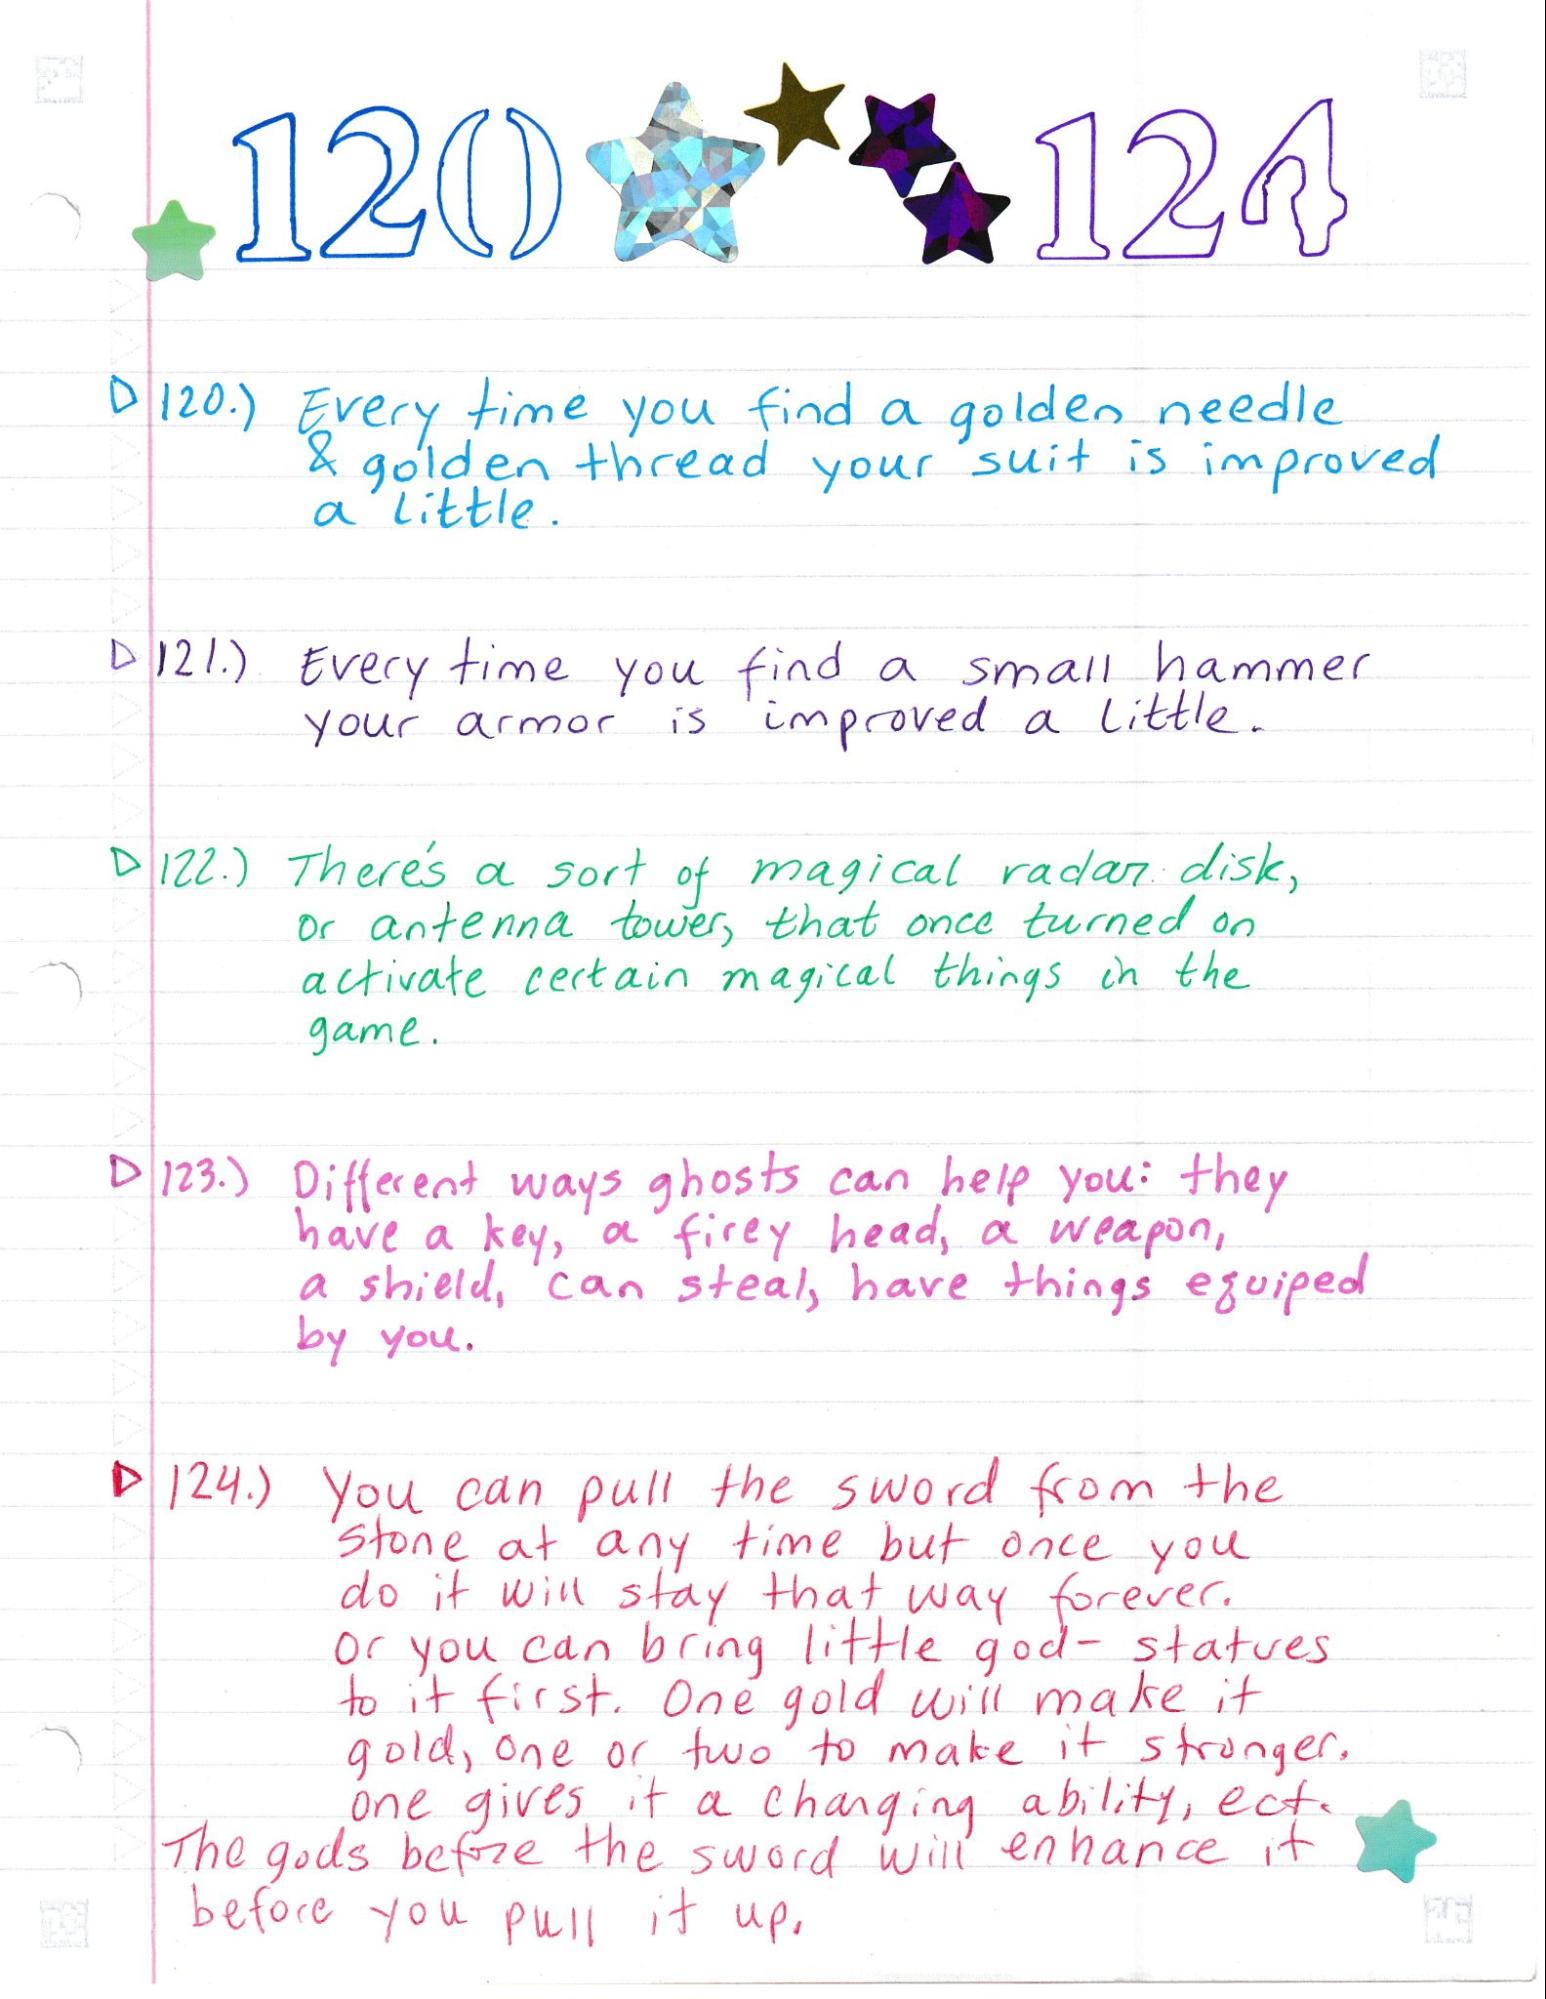 120 124
120.) Every time you find a golden needle
& golden thread your suit is improved
a little.
121.) Every time you find a small hammer
your armor is improved a little.
122.) There's a sort of magical radar disk,
or antenna tower, that once turned on
activate certain magical things in the
game.
123.) Different ways ghosts can help you: they
have a key, a firey head, a weapon,
a shield, can steal, have things equiped
by you.
124.) You can pull the sword from the
stone at any time but once you
do it will stay that way forever.
Or you can bring little god- statues
to it first. One gold will make it
gold, one or two to make it stronger.
one gives it a changing ability, ect.
The gods before the sword will enhance it
before you pull it up.